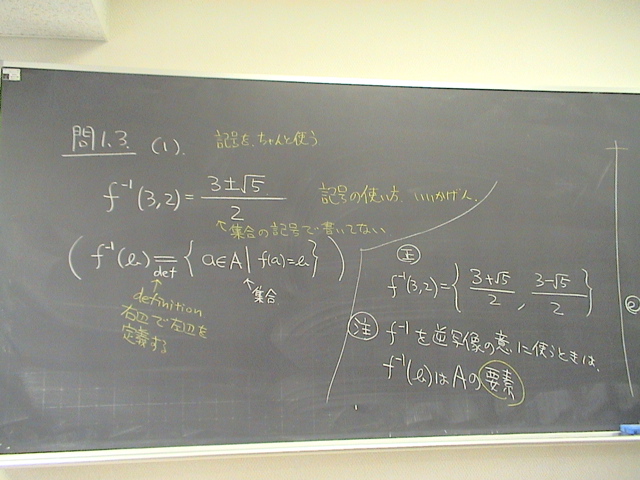 問1.3. (1). 記号を、ちゃんと使う.
f⁻¹(3,2) = (3±√5)/2 記号の使い方、いいかげん.
↑集合の記号で書いてない.
( f⁻¹(b) =def { a∈A | f(a)=b } )
↑集合
↑
definition
右辺で左辺を
定義する
正
f⁻¹(3,2) = { (3+√5)/2 , (3-√5)/2 }
注 f⁻¹を逆写像の意に使うときは、
f⁻¹(b)はAの要素